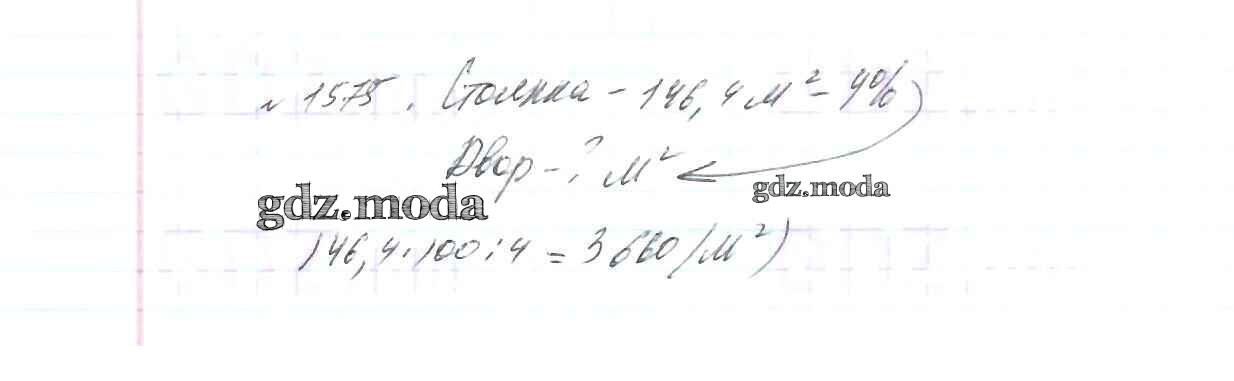 № 1575. Стоянка – 146,4 м² – 4%
Двор – ? м²
gdz.moda
gdz.moda
146,4 · 100 : 4 = 3660 (м²)